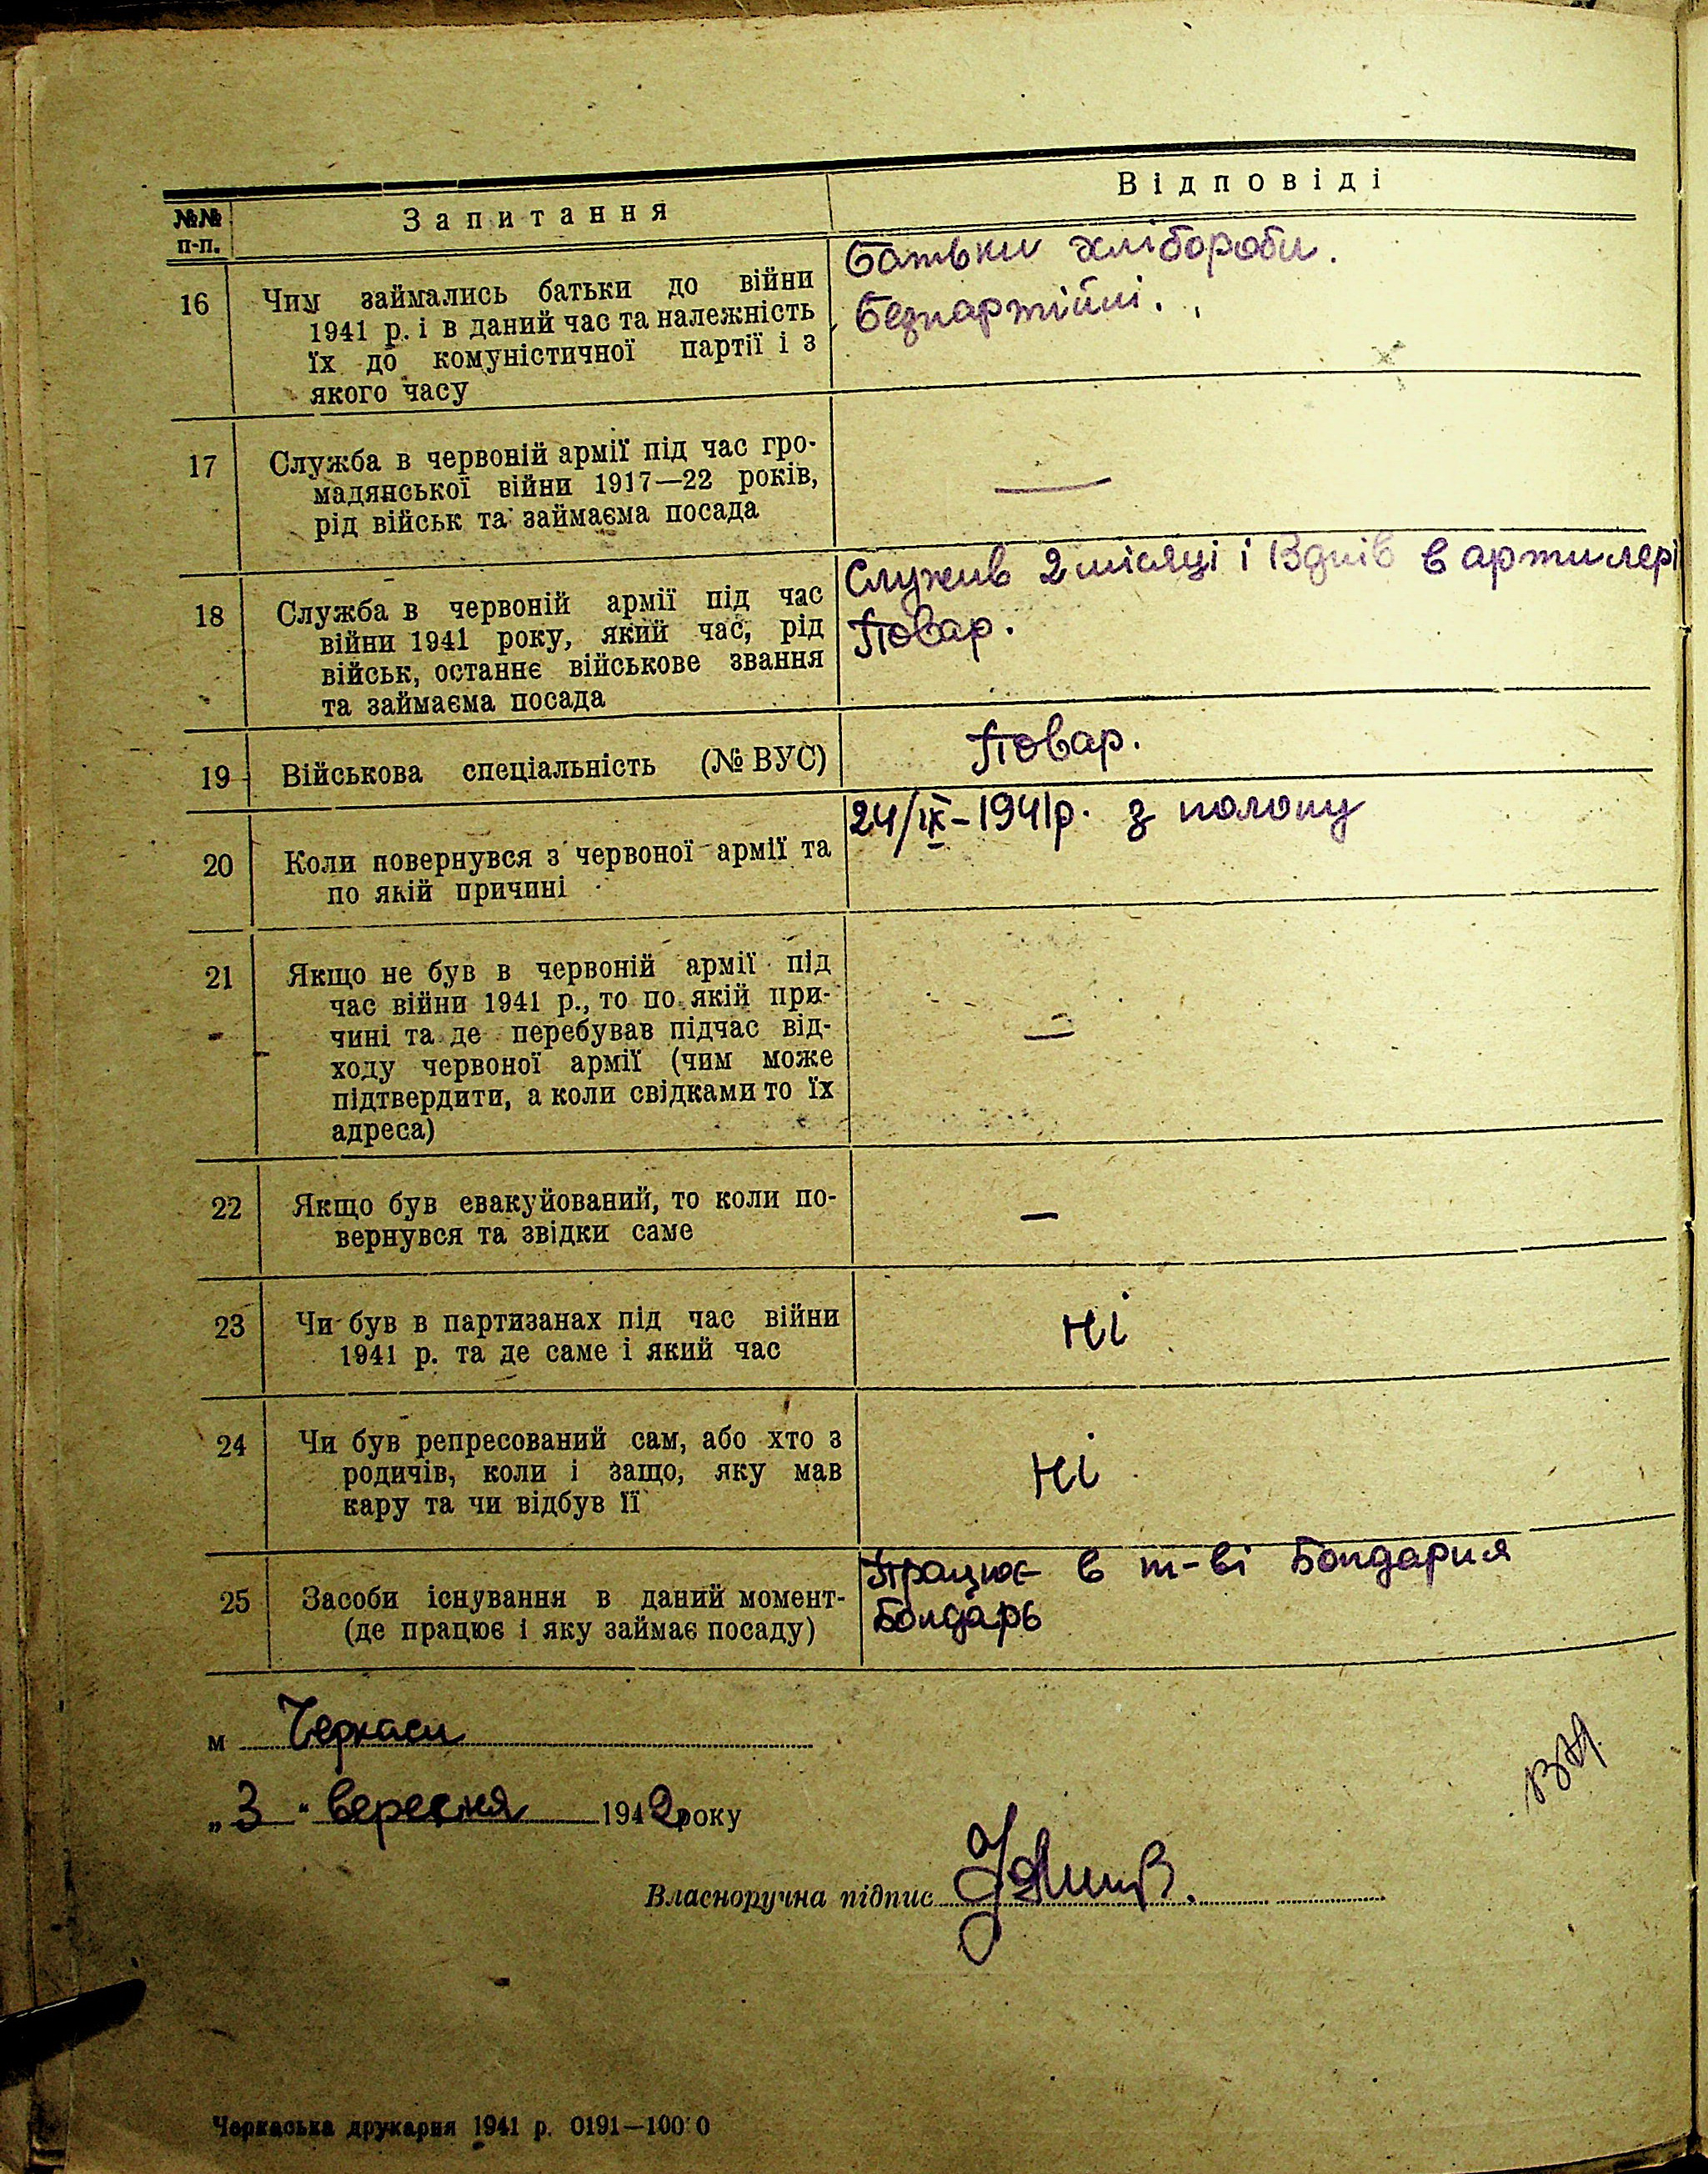 №№ п-п.
Запитання
Відповіді
16
Чим займались батьки до війни
1941 р. і в даний час та належність
їх до комуністичної партії і з
якого часу
Батьки хлібороби.
Безпартійні.
17
Служба в червоній армії під час гро-
мадянської війни 1917—22 років,
рід військ та займаєма посада
—
18
Служба в червоній армії під час
війни 1941 року, який час, рід
військ, останнє військове звання
та займаєма посада
Служив 2 місяці і 13 днів в артилері
Повар.
19
Військова спеціальність (№ ВУС)
Повар.
20
Коли повернувся з червоної армії та
по якій причині
24/ІХ-1941р. з полону
21
Якщо не був в червоній армії під
час війни 1941 р., то по якій при-
чині та де перебував підчас від-
ходу червоної армії (чим може
підтвердити, а коли свідками то їх
адреса)
—
22
Якщо був евакуйований, то коли по-
вернувся та звідки саме
—
23
Чи був в партизанах під час війни
1941 р. та де саме і який час
Ні
24
Чи був репресований сам, або хто з
родичів, коли і защо, яку мав
кару та чи відбув її
Ні
25
Засоби існування в даний момент-
(де працює і яку займає посаду)
Працює в т-ві Бондарня
Бондарь
м Черкаси
„3" вересня 1942 року
Власноручна підпис
Черкаська друкарня 1941 р. 0191—100 0